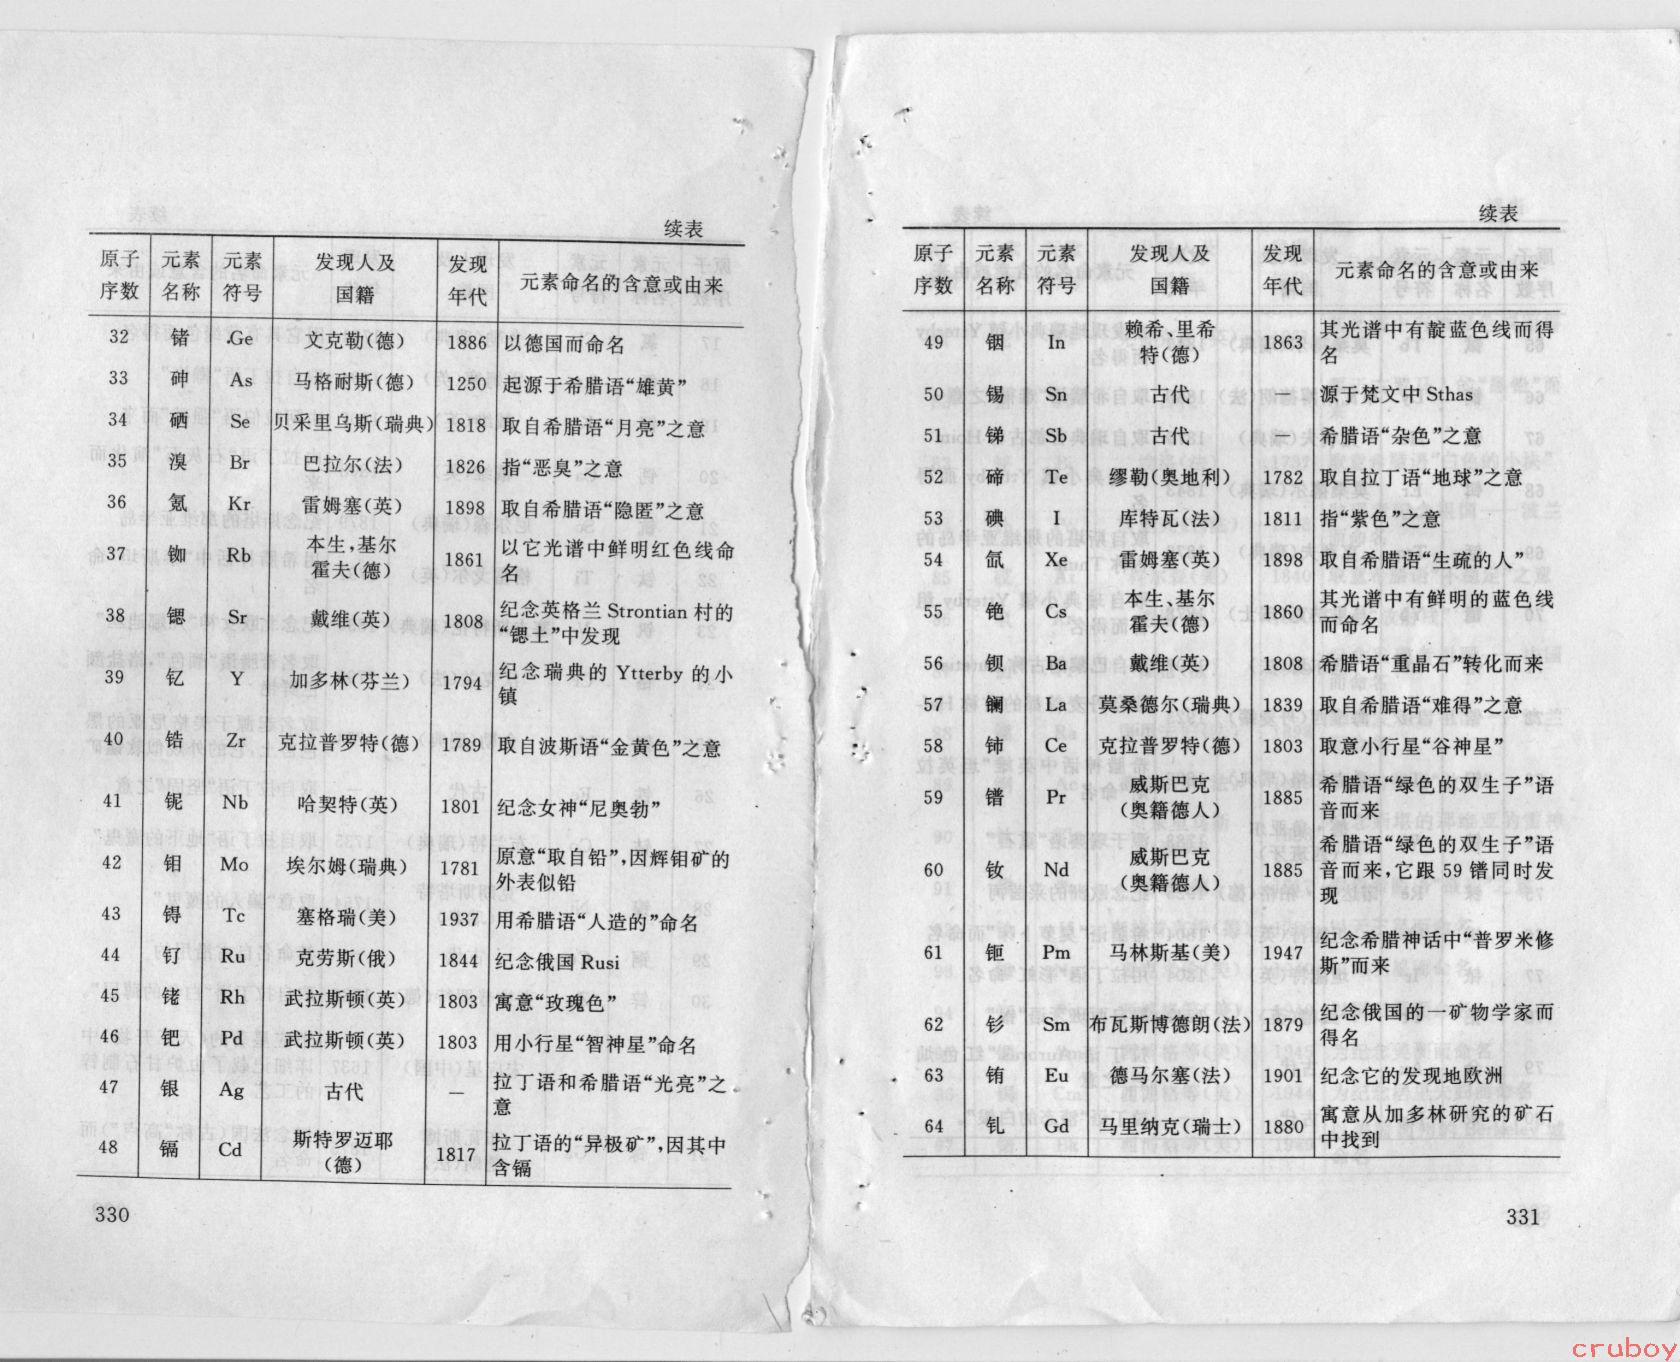 续表
原子 元素 元素 发现人及 发现 元素命名的含意或由来
序数 名称 符号 国籍 年代
32 锗 Ge 文克勒(德) 1886 以德国而命名
33 砷 As 马格耐斯(德) 1250 起源于希腊语“雄黄”
34 硒 Se 贝采里乌斯(瑞典) 1818 取自希腊语“月亮”之意
35 溴 Br 巴拉尔(法) 1826 指“恶臭”之意
36 氪 Kr 雷姆塞(英) 1898 取自希腊语“隐匿”之意
37 铷 Rb 本生,基尔 1861 以它光谱中鲜明红色线命
霍夫(德) 名
38 锶 Sr 戴维(英) 1808 纪念英格兰 Strontian 村的
“锶土”中发现
39 钇 Y 加多林(芬兰) 1794 纪念瑞典的 Ytterby 的小
镇
40 锆 Zr 克拉普罗特(德) 1789 取自波斯语“金黄色”之意
41 铌 Nb 哈契特(英) 1801 纪念女神“尼奥勃”
42 钼 Mo 埃尔姆(瑞典) 1781 原意“取自铅”,因辉钼矿的
外表似铅
43 锝 Tc 塞格瑞(美) 1937 用希腊语“人造的”命名
44 钌 Ru 克劳斯(俄) 1844 纪念俄国 Rusi
45 铑 Rh 武拉斯顿(英) 1803 寓意“玫瑰色”
46 钯 Pd 武拉斯顿(英) 1803 用小行星“智神星”命名
47 银 Ag 古代 — 拉丁语和希腊语“光亮”之
意
48 镉 Cd 斯特罗迈耶 1817 拉丁语的“异极矿”,因其中
(德) 含镉
330
续表
原子 元素 元素 发现人及 发现 元素命名的含意或由来
序数 名称 符号 国籍 年代
49 铟 In 赖希、里希 1863 其光谱中有靛蓝色线而得
特(德) 名
50 锡 Sn 古代 — 源于梵文中 Sthas
51 锑 Sb 古代 — 希腊语“杂色”之意
52 碲 Te 缪勒(奥地利) 1782 取自拉丁语“地球”之意
53 碘 I 库特瓦(法) 1811 指“紫色”之意
54 氙 Xe 雷姆塞(英) 1898 取自希腊语“生疏的人”
55 铯 Cs 本生、基尔 1860 其光谱中有鲜明的蓝色线
霍夫(德) 而命名
56 钡 Ba 戴维(英) 1808 希腊语“重晶石”转化而来
57 镧 La 莫桑德尔(瑞典) 1839 取自希腊语“难得”之意
58 铈 Ce 克拉普罗特(德) 1803 取意小行星“谷神星”
59 镨 Pr 威斯巴克 1885 希腊语“绿色的双生子”语
(奥籍德人) 音而来
60 钕 Nd 威斯巴克 1885 希腊语“绿色的双生子”语
(奥籍德人) 音而来,它跟 59 镨同时发
现
61 钷 Pm 马林斯基(美) 1947 纪念希腊神话中“普罗米修
斯”而来
62 钐 Sm 布瓦斯博德朗(法) 1879 纪念俄国的一矿物学家而
得名
63 铕 Eu 德马尔塞(法) 1901 纪念它的发现地欧洲
64 钆 Gd 马里纳克(瑞士) 1880 寓意从加多林研究的矿石
中找到
331
cruboy